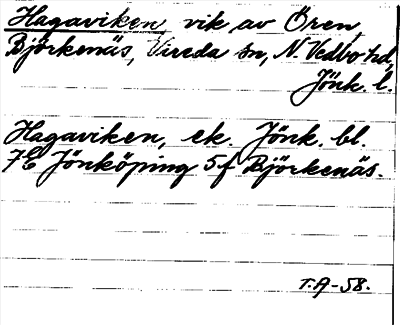 Hagaviken, vik av Ören,
Björkenäs, Vireda sn, N. Vedbo hd,
Jönk. l.
Hagaviken, ek. Jönk. bl.
7E Jönköping 5f Björkenäs.
T.A-58.